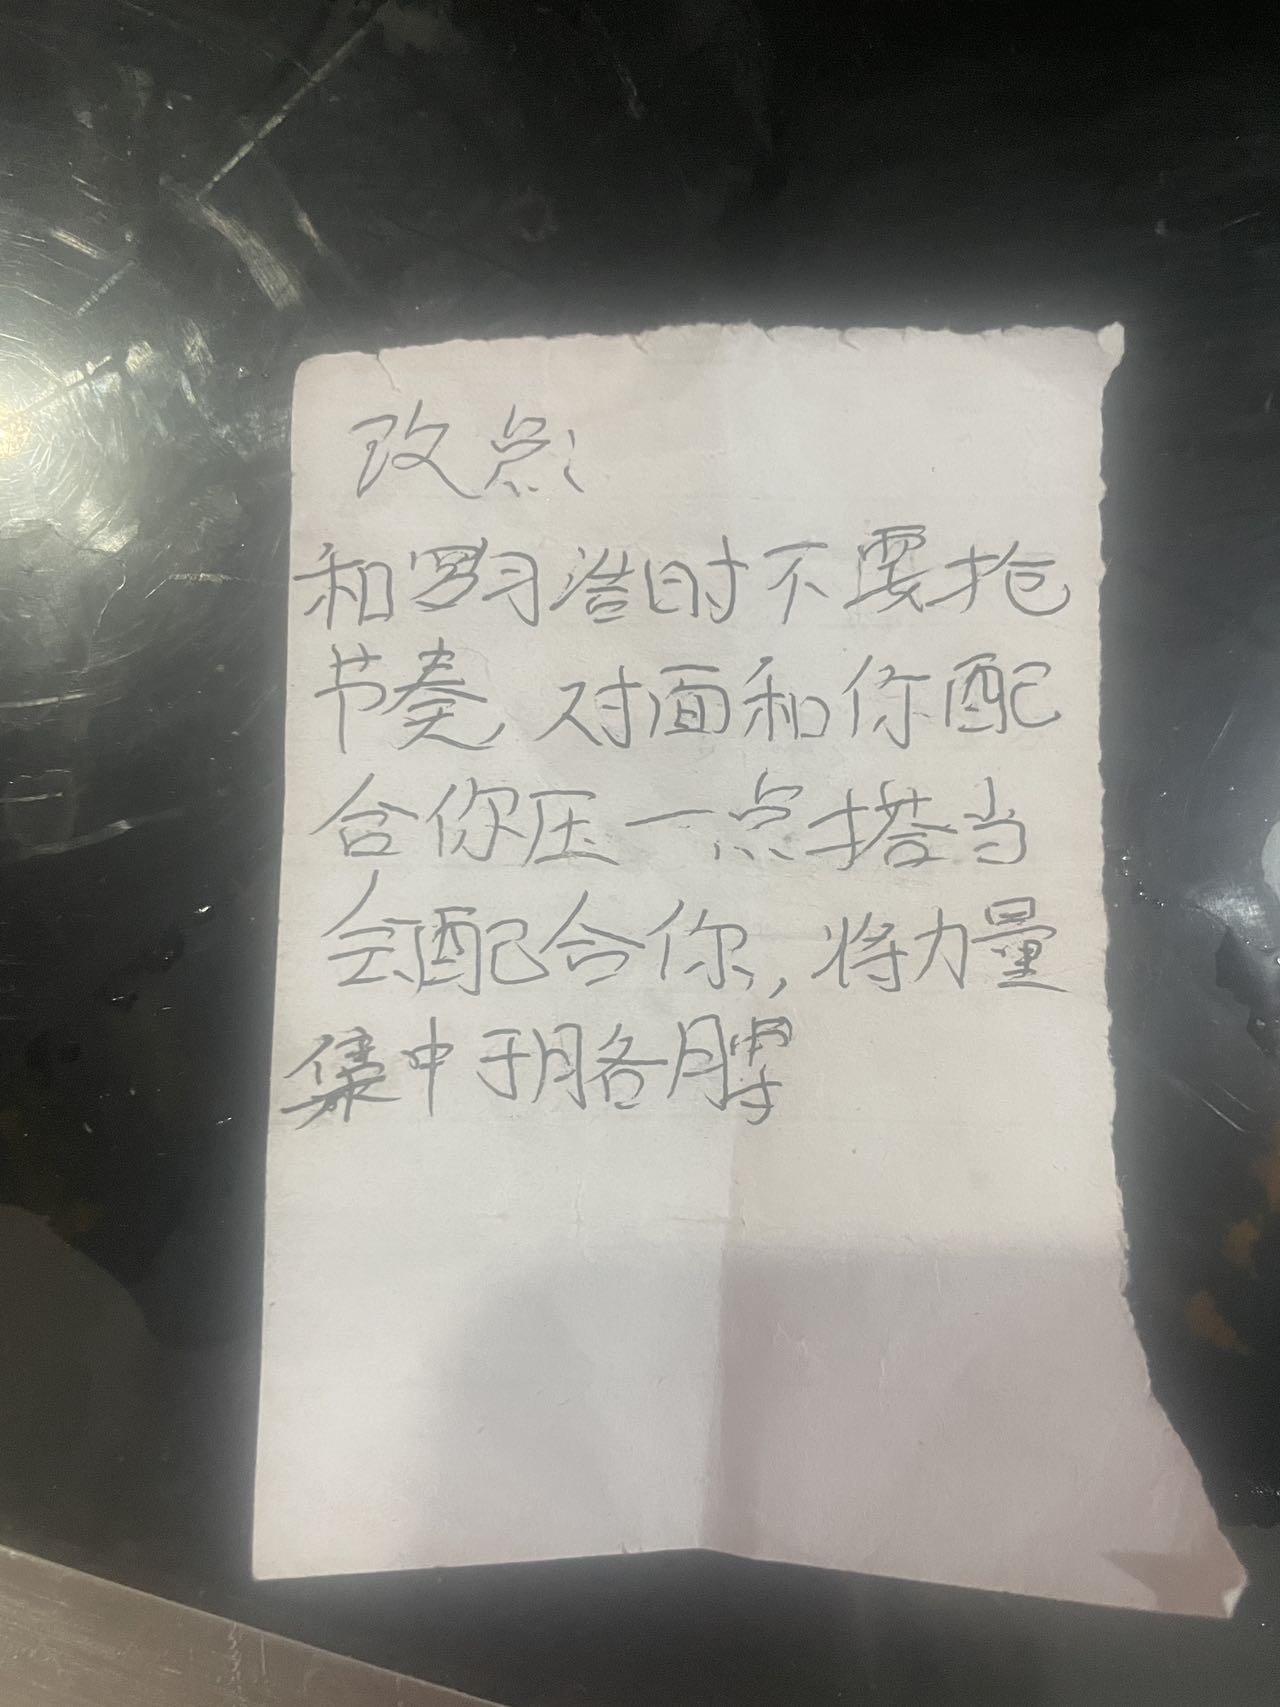 改点：
和罗习浩时不要抢
节奏，对面和你配
合你压一点搭当
会配合你，将力量
集中于胳膊